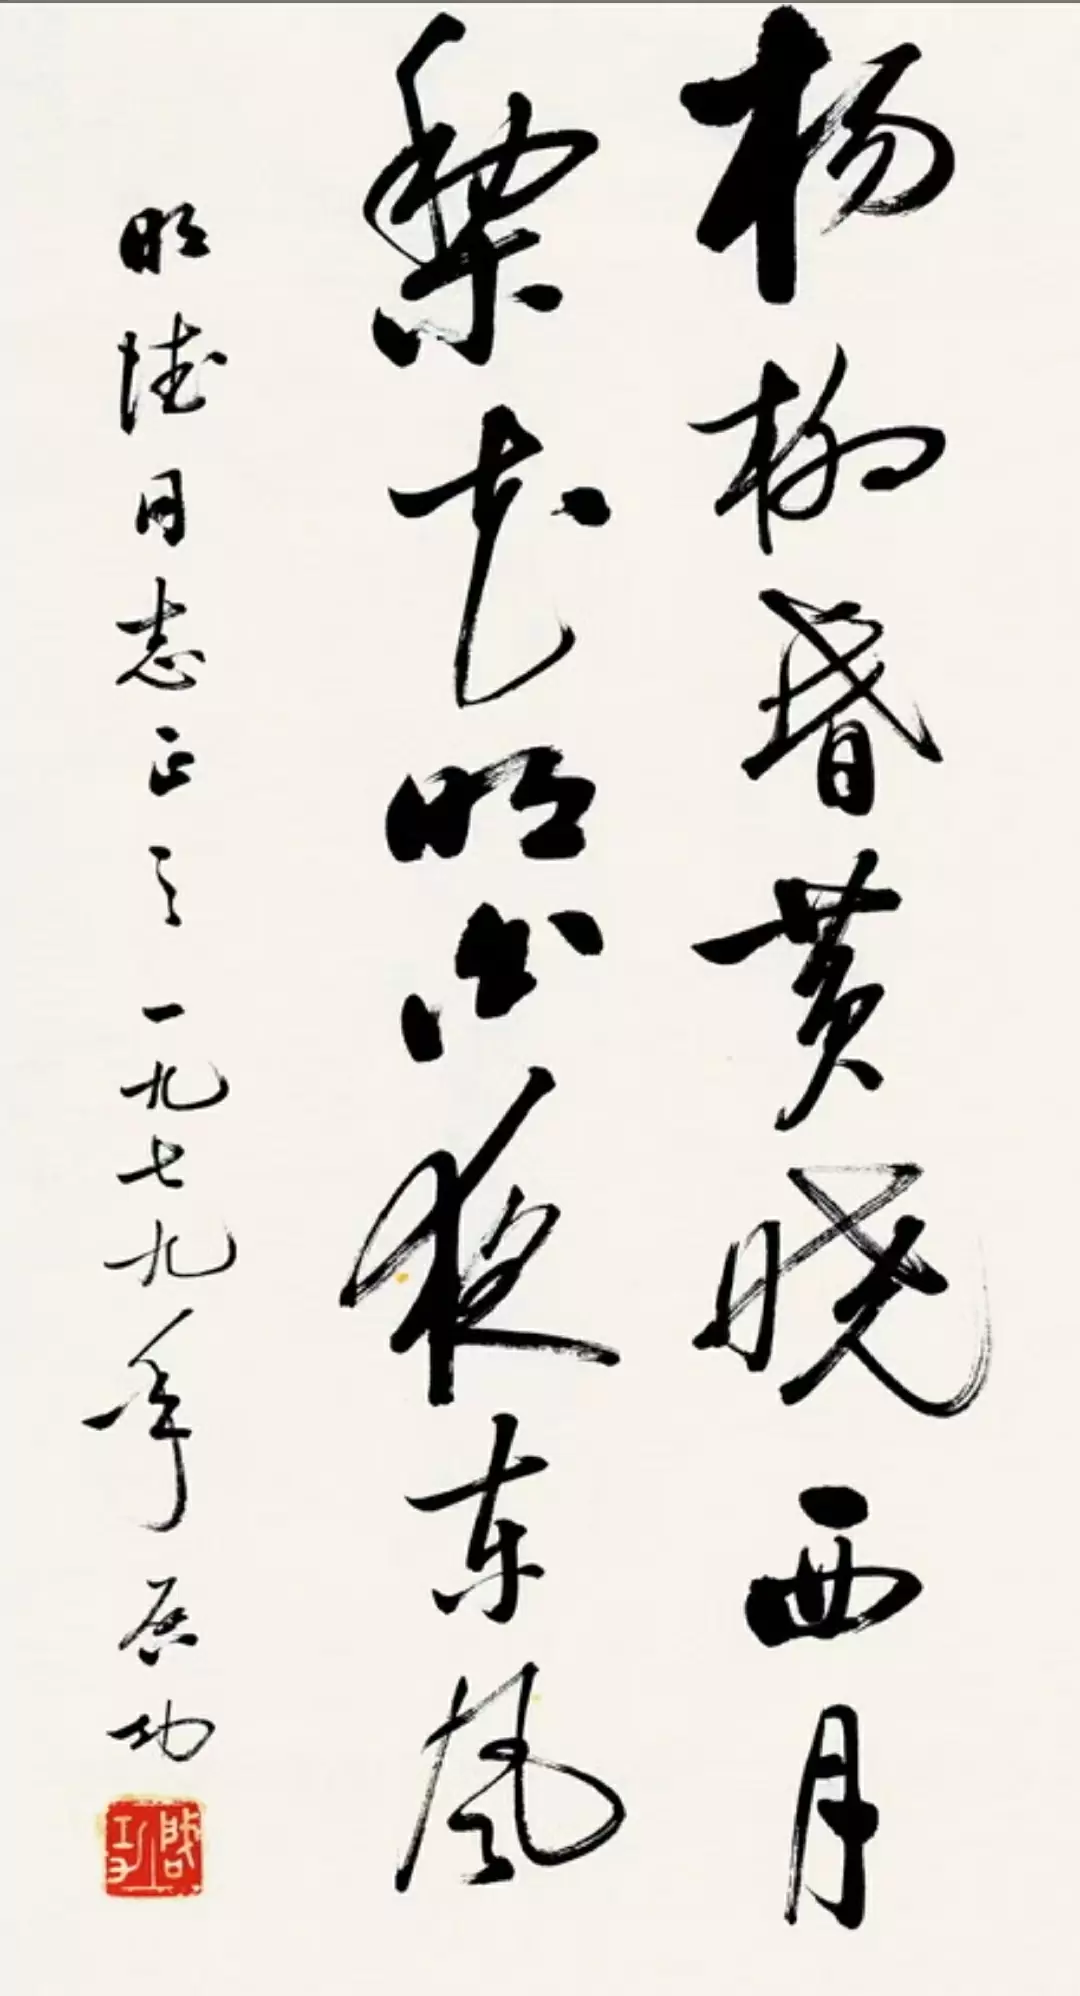 杨柳昏黄晓西月
梨花明白夜东风
明同志正之 一九七九年 启功
启功